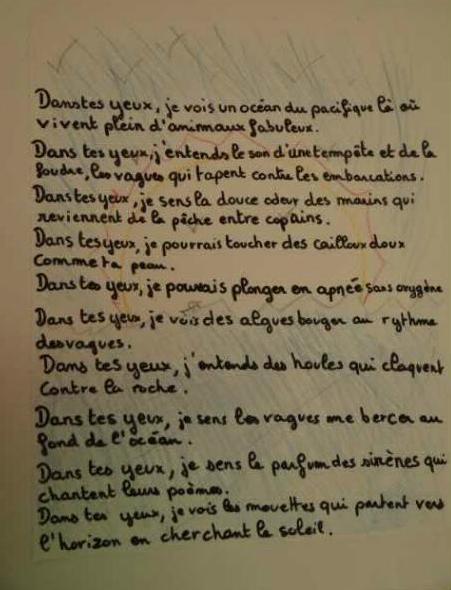 Dans tes yeux, je vois un océan du pacifique là où
vivent plein d'animaux fabuleux.
Dans tes yeux, j'entends le son d'une tempête et de la
foudre, les vagues qui tapent contre les embarcations.
Dans tes yeux, je sens la douce odeur des marins qui
reviennent de la pêche entre copains.
Dans tes yeux, je pourrais toucher des cailloux doux
comme ta peau.
Dans tes yeux, je pourrais plonger en apnée sans oxygène
Dans tes yeux, je vois des algues bouger au rythme
des vagues.
Dans tes yeux, j'entends des houles qui claquent
contre la roche.
Dans tes yeux, je sens les vagues me bercer au
fond de l'océan.
Dans tes yeux, je sens le parfum des sirènes qui
chantent leurs poèmes.
Dans tes yeux, je vois les mouettes qui partent vers
l'horizon en cherchant le soleil.